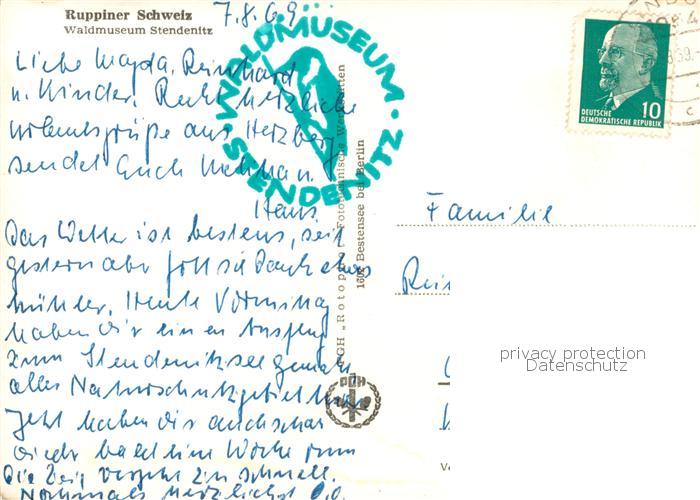 Ruppiner Schweiz
Waldmuseum Stendenitz
7.8.69
WALDMUSEUM · STENDENITZ
Liebe Magda, Reinhard
u. Kinder. Recht herzliche
Urlaubsgrüße aus Herzberg
sendet Euch
Hans.
Das Wetter ist bestens, seit
gestern aber soll sie Dank etwas
kühler. Heute Vormittag
haben wir einen Ausflug
zum Stendenitzsee gemacht
alles Naturschutzgebiet hier
Jetzt haben wir auch schon
wieder bald eine Woche rum
Die Zeit vergeht zu schnell.
Nochmals herzlichst
PGH „Rotophot" Fotochemische Werkstätten
1602 Bestensee bei Berlin
PGH
10
DEUTSCHE
DEMOKRATISCHE REPUBLIK
Familie
privacy protection
Datenschutz